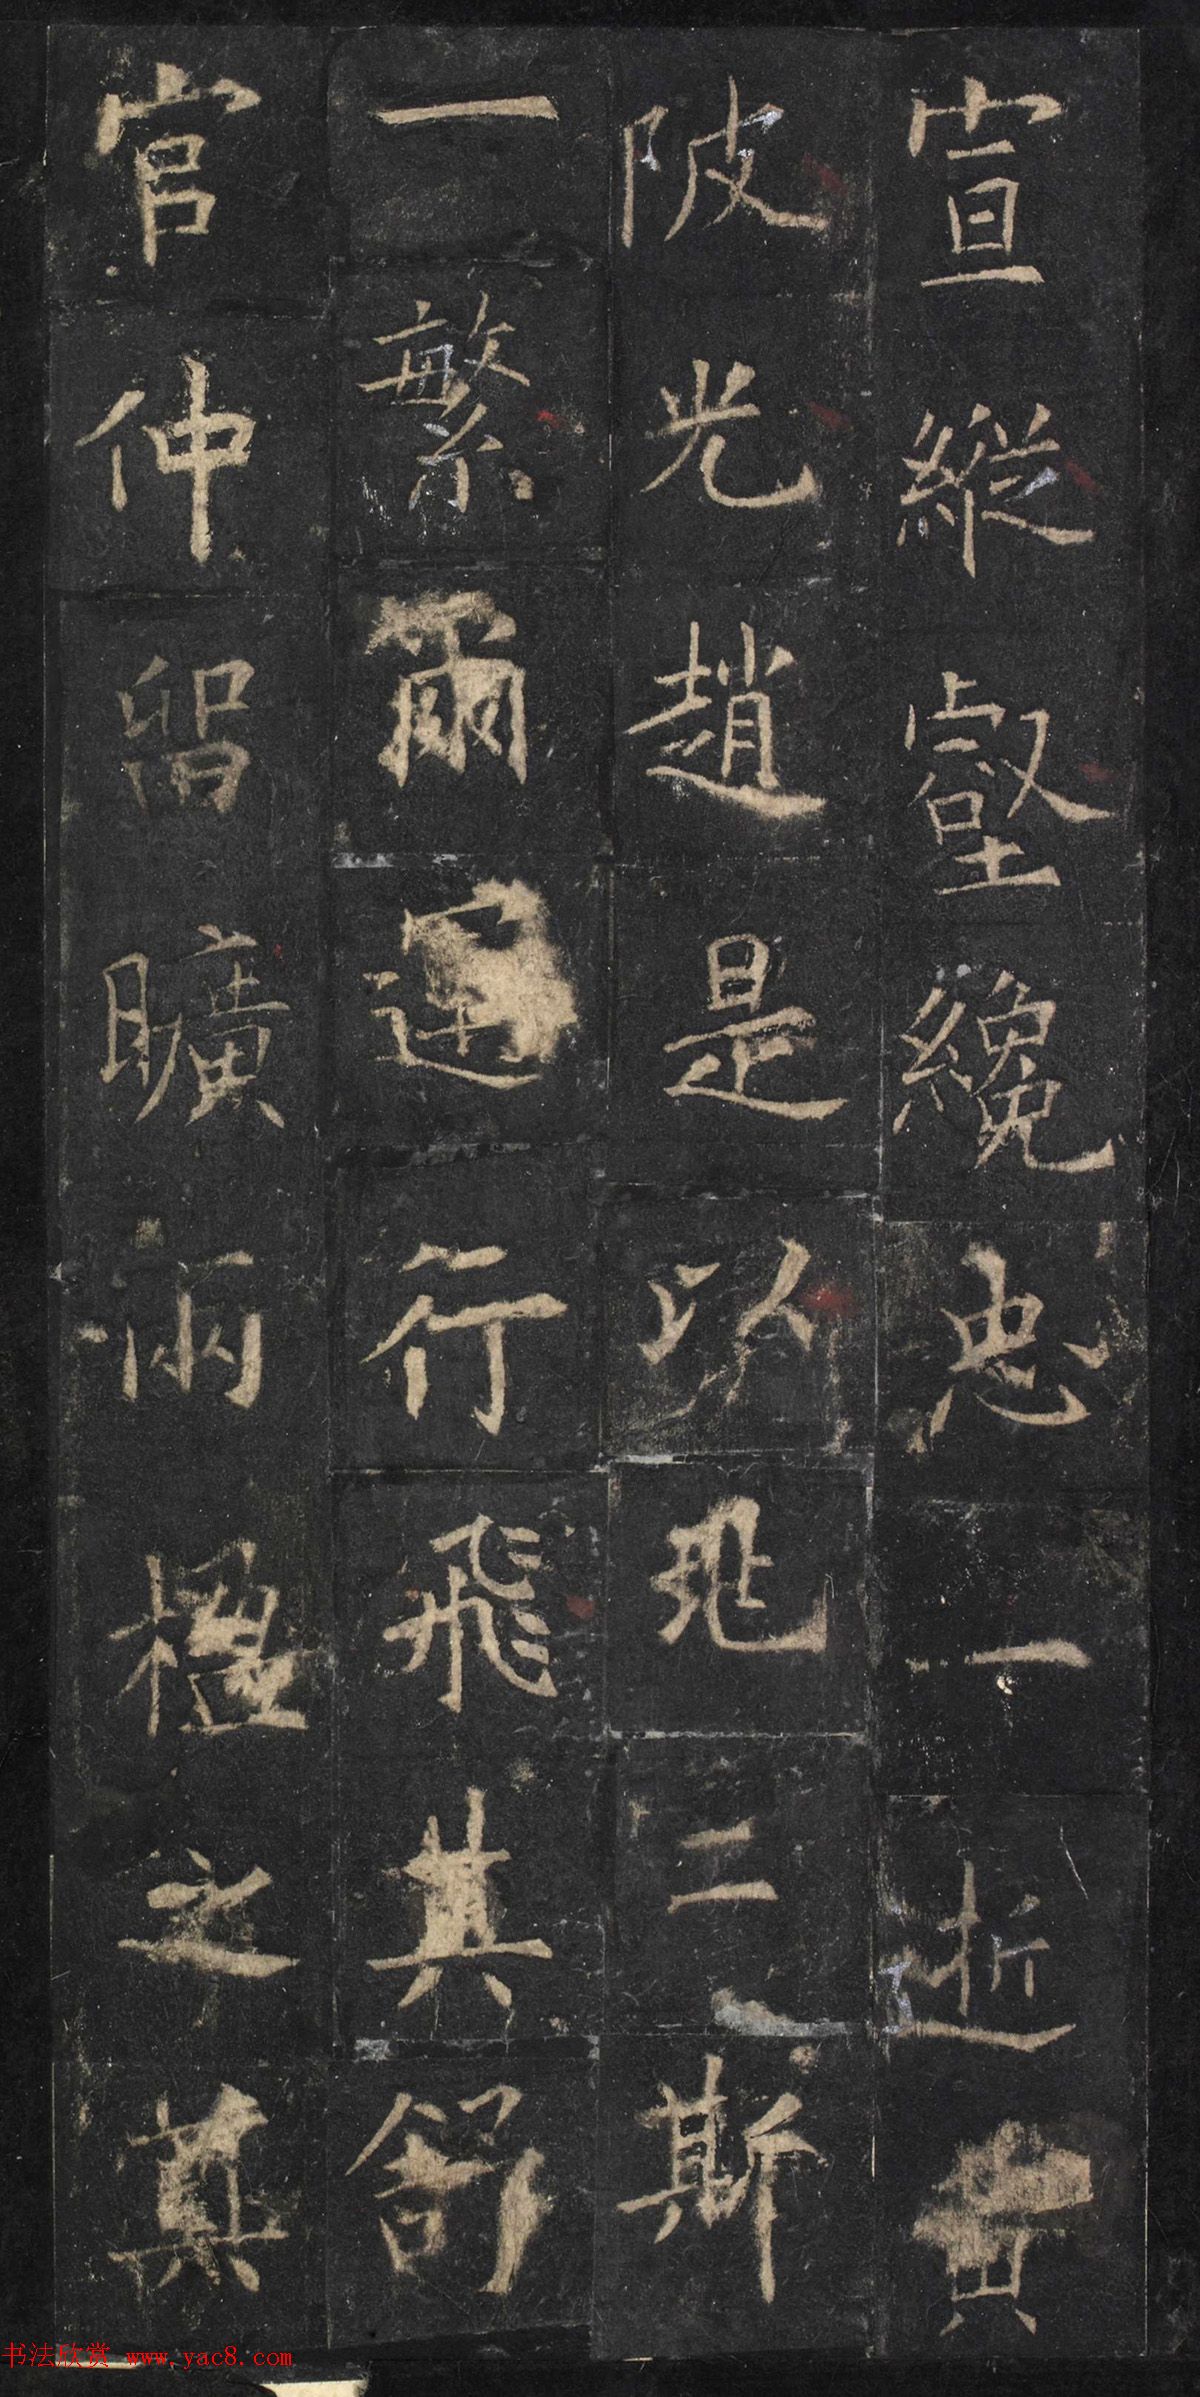 宣縱壑纔忠一逝
陂光趙是以兆二斯
一繁爾行飛其舒
官仲留曠兩楹之奠
书法欣赏 www.yac8.com